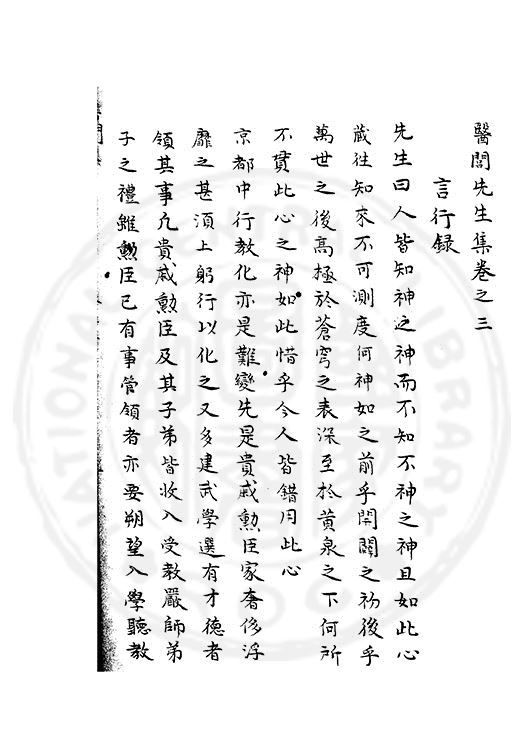 醫閭先生集卷之三
言行録
先生曰人皆知神之神而不知不神之神且如此心
蔵往知來不可測度何神如之前乎開闢之初後乎
萬世之後高極於蒼穹之表深至於黄泉之下何所
不貫此心之神如此惜乎今人皆錯用此心
京都中行教化亦是難變先是貴戚勲臣家奢侈浮
靡之甚須上躬行以化之又多建武學選有才德者
領其事凢貴戚勲臣及其子弟皆收入受教嚴師弟
子之禮雖勲臣已有事管領者亦要朔望入學聽教